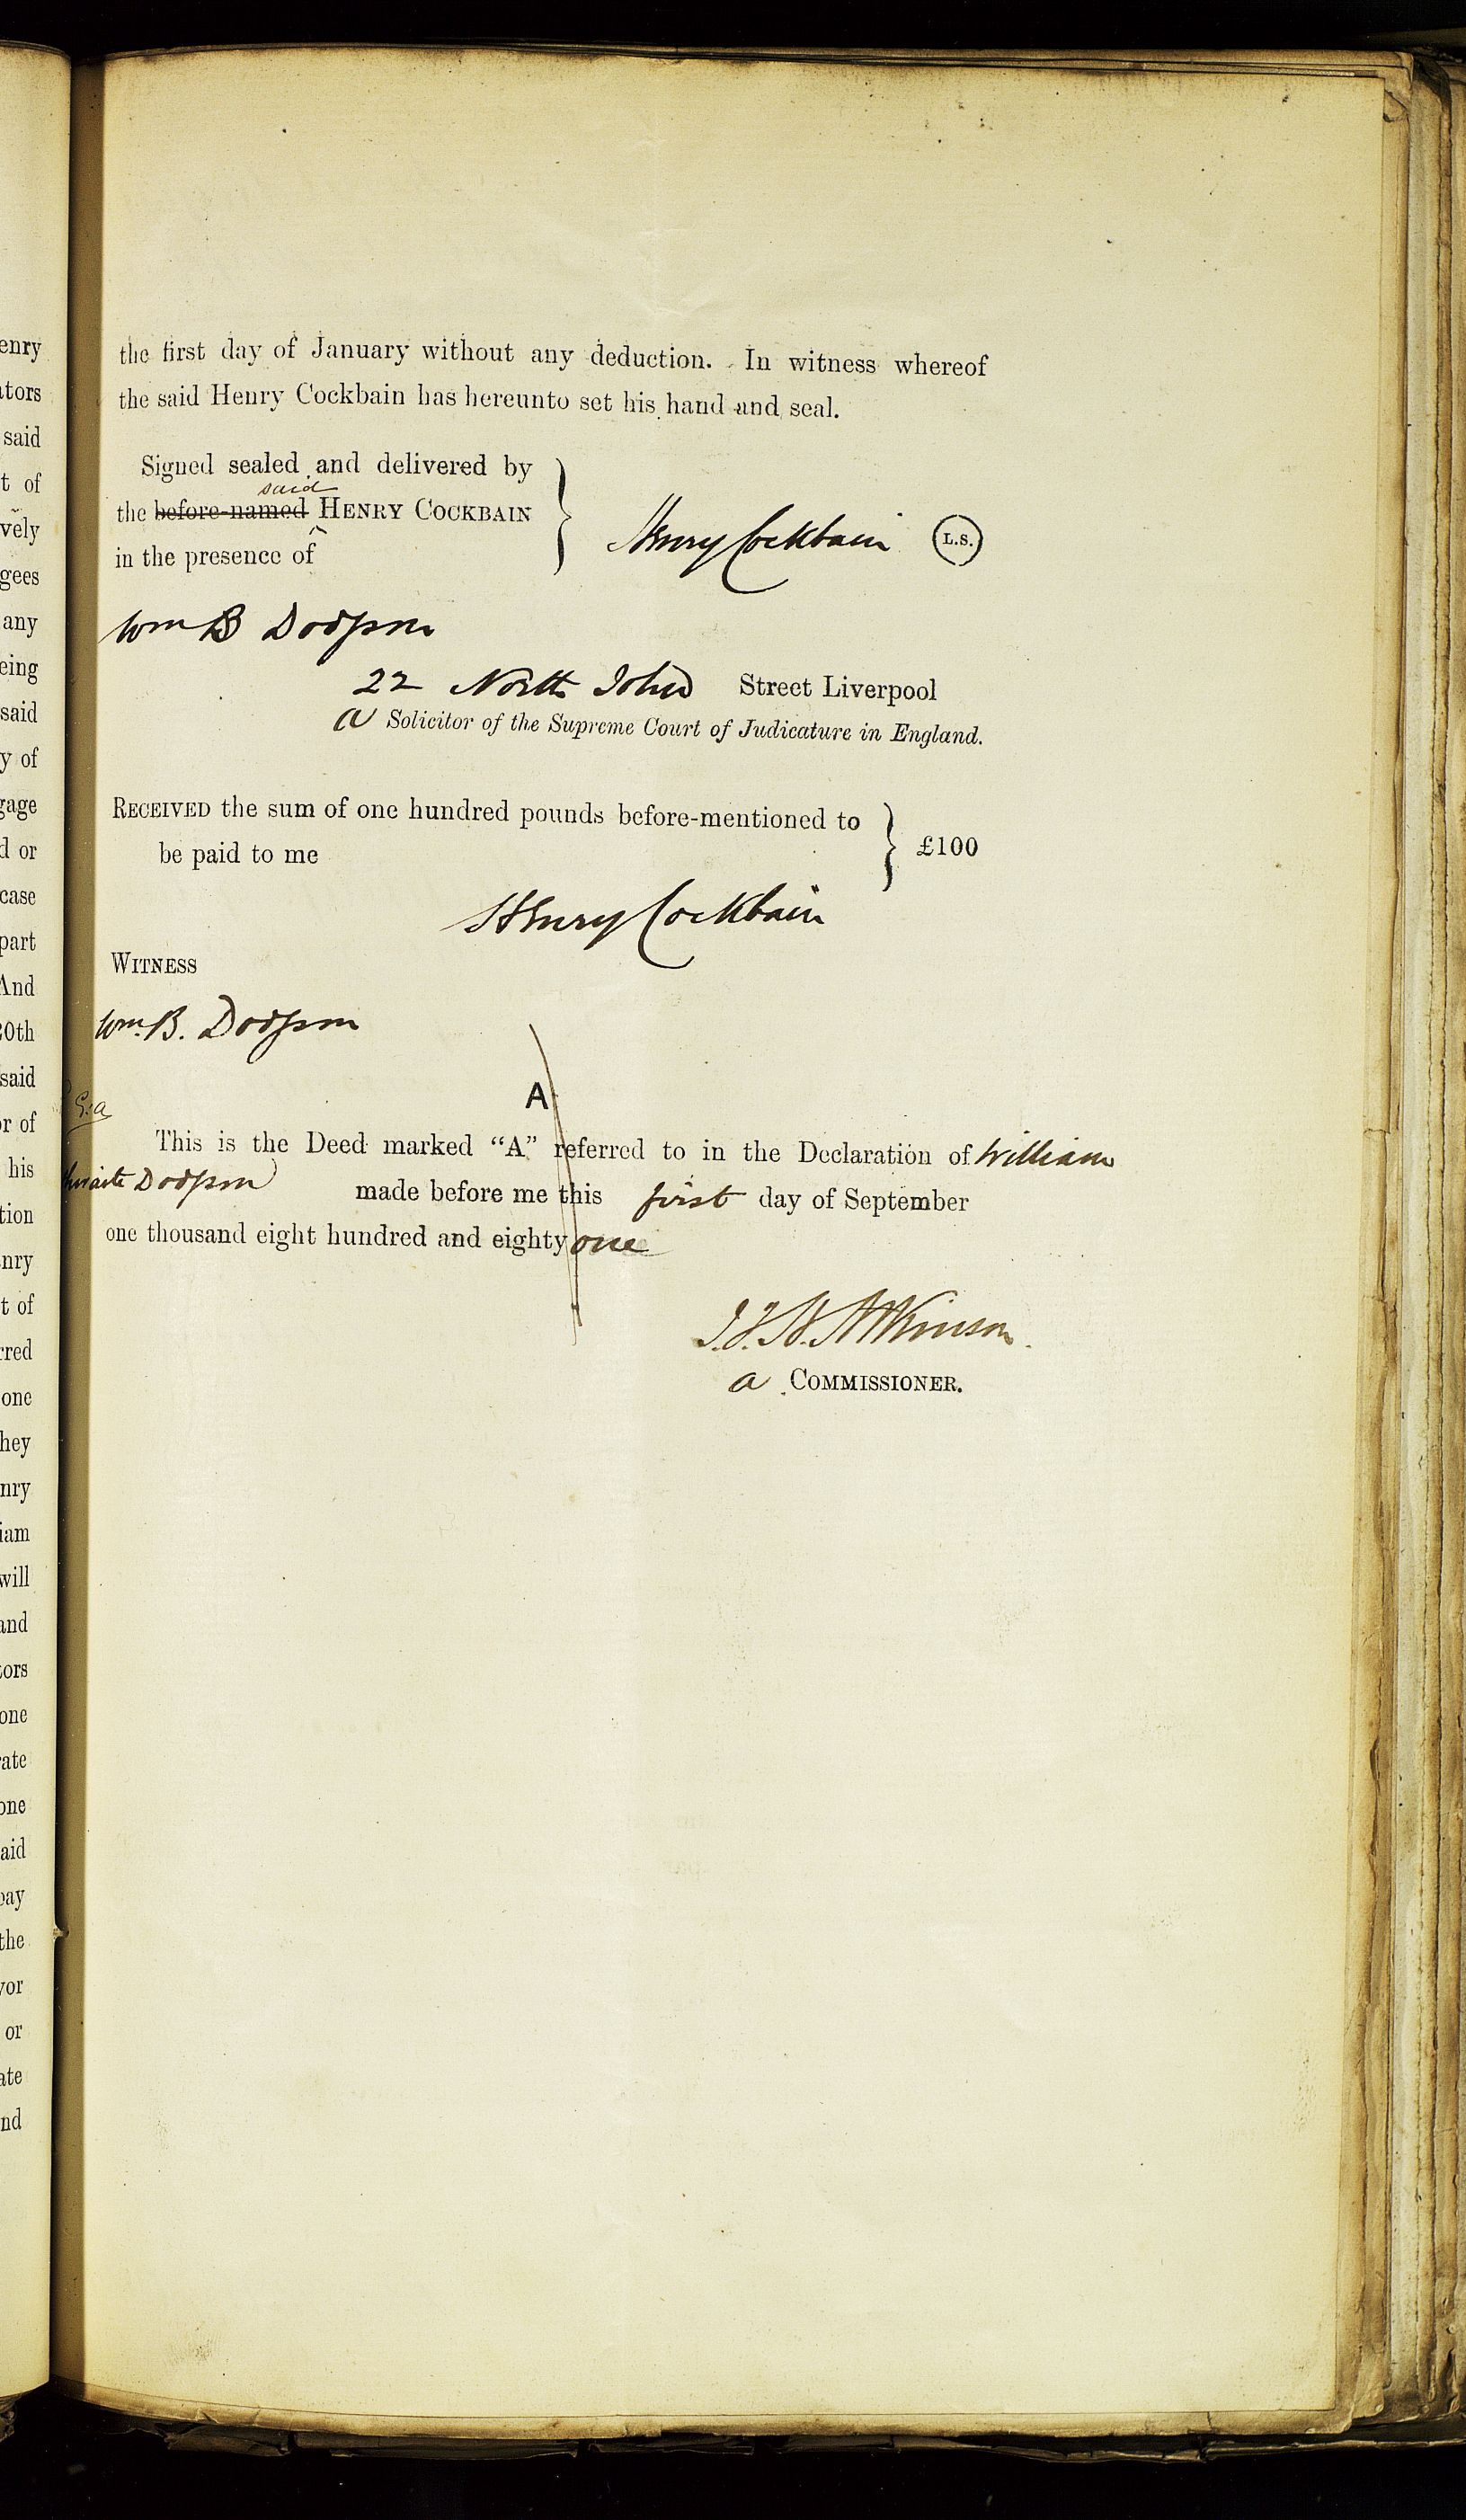 the first day of January without any deduction. In witness whereof
the said Henry Cockbain has hereunto set his hand and seal.
Signed sealed and delivered by
said
the before-named HENRY COCKBAIN
in the presence of
Henry Cockbain L.S.
Wm B Dodgson
22 North John Street Liverpool
a Solicitor of the Supreme Court of Judicature in England.
RECEIVED the sum of one hundred pounds before-mentioned to
be paid to me
£100
Henry Cockbain
WITNESS
Wm. B. Dodgson
A
This is the Deed marked "A" referred to in the Declaration of William
Dodgson made before me this first day of September
one thousand eight hundred and eighty one
Atkinson
a COMMISSIONER.
enry
ators
said
t of
vely
gees
any
eing
said
y of
gage
d or
case
part
And
30th
said
or of
his
tion
nry
t of
rred
one
hey
nry
iam
will
and
tors
one
rate
one
aid
pay
the
yor
or
ate
nd